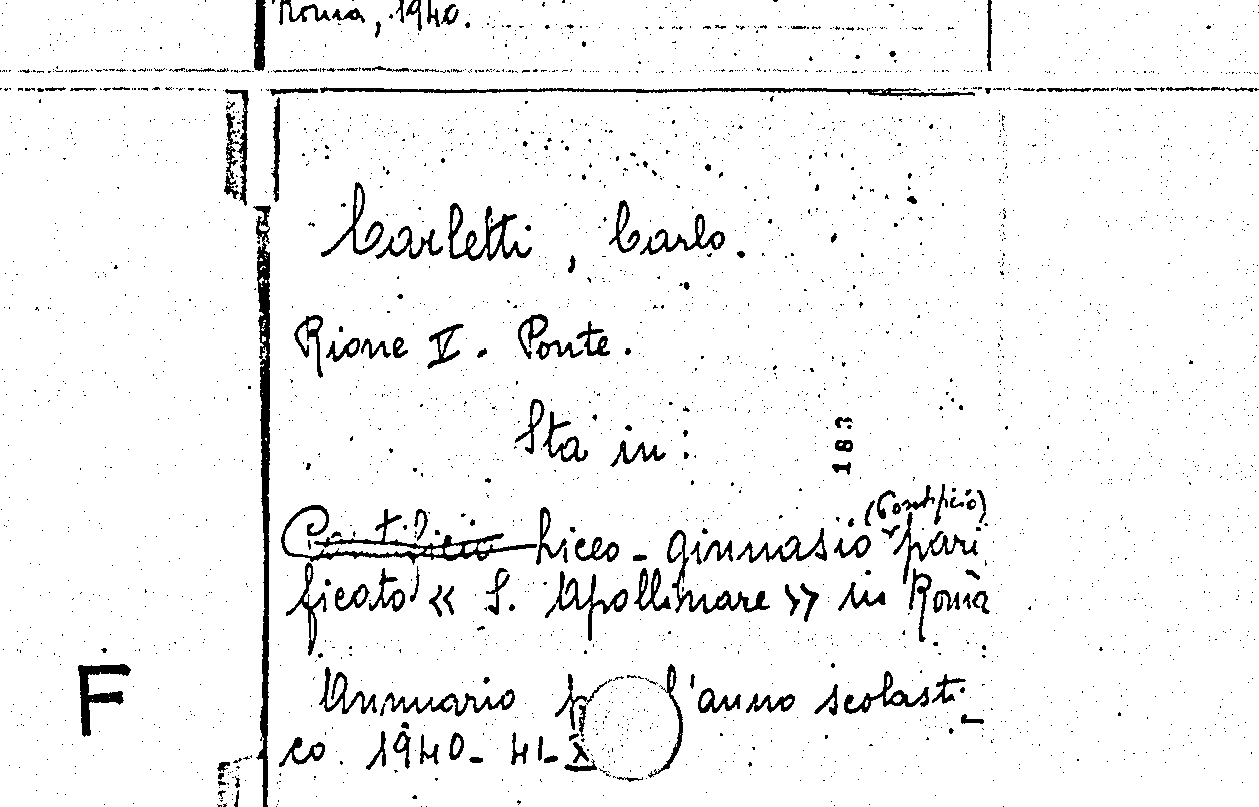 Roma, 1940.
Carletti, Carlo.
Rione V. Ponte.
Sta in:
183
(Pontificio)
Pontificio Liceo-ginnasio pari
ficato « S. Apollinare » in Roma
Annuario p l'anno scolasti-
co. 1940-41-X
F